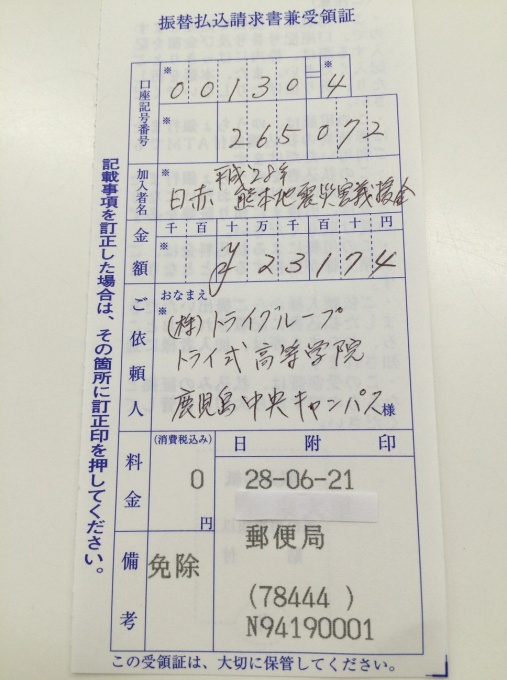 振替払込請求書兼受領証
口座記号番号
※ 00130=4
※ 265072
加入者名
※ 日赤 平成28年熊本地震災害義援金
金額
千 百 十 万 千 百 十 円
¥23174
ご依頼人
おなまえ
※ (株)トライグループ
トライ式高等学院
鹿児島中央キャンパス様
料金
(消費税込み)
0
円
日附印
28-06-21
郵便局
(78444 )
N94190001
備考
免除
記載事項を訂正した場合は、その箇所に訂正印を押してください。
この受領証は、大切に保管してください。